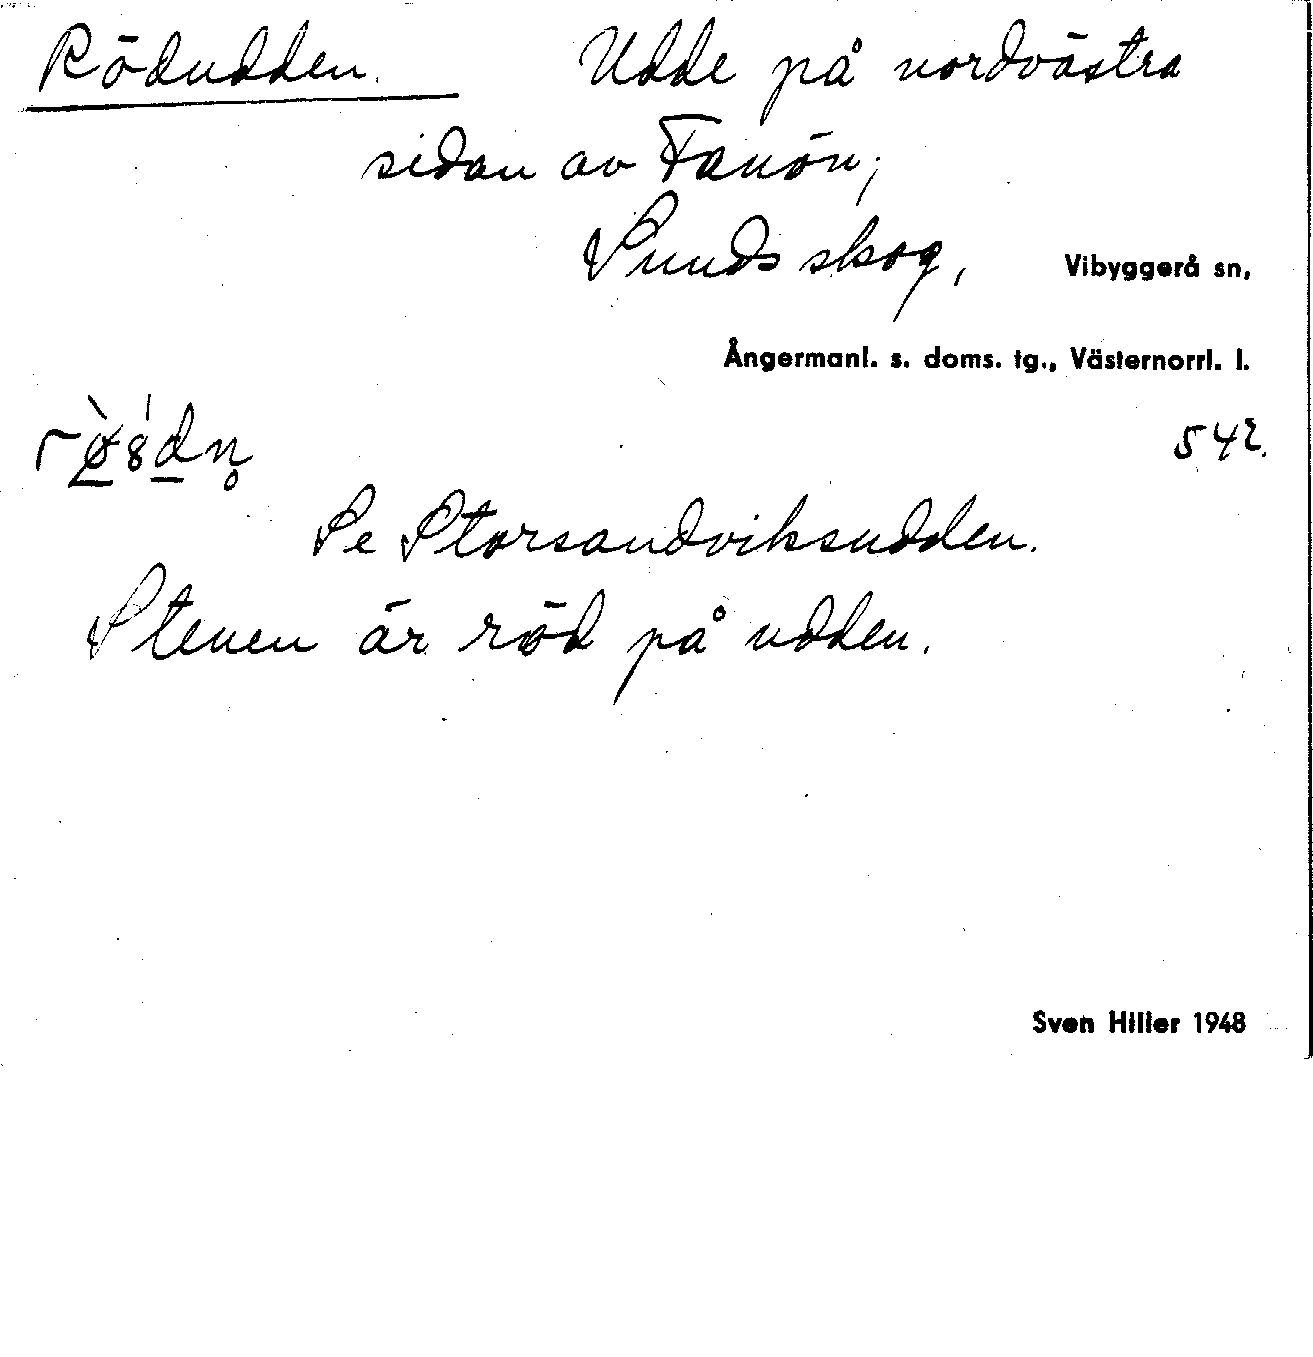 Rödudden. Udde på nordvästra
sidan av Fanön,
Sundsskog, Vibyggerå sn,
Ångermanl. s. doms. tg., Västernorrl. l.
542.
Se Storsandviksudden.
Stenen är röd på udden.
Sven Hiller 1948